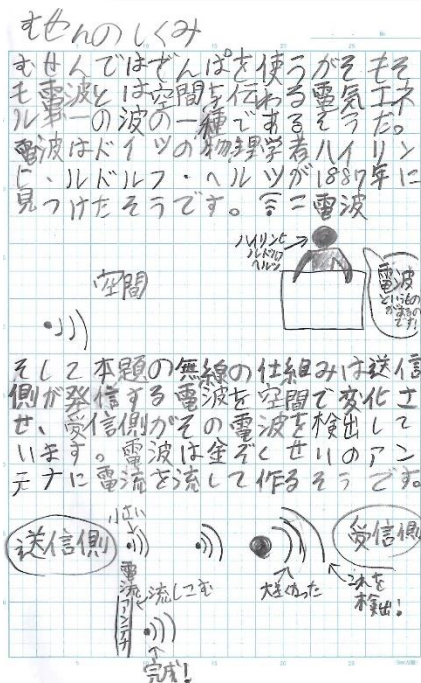 むせんのしくみ
むせんではでんぱを使うがそもそ
も電波とは空間を伝わる電気エネ
ルギーの波の一種であるそうだ。
電波はドイツの物理学者ハイリン
ヒ・ルドルフ・ヘルツが1887年に
見つけたそうです。 =電波
ハイリンヒ
ルドルフ
ヘルツ
電波
というもの
があるの
です!
空間
そして本題の無線の仕組みは送信
側が発信する電波を空間で変化さ
せ、受信側がその電波を検出して
います。電波は金ぞくせいのアン
テナに電流を流して作るそうです。
送信側
小さい
大きくなった
受信側
これを
検出!
電流
アンテナ
流しこむ
完成!